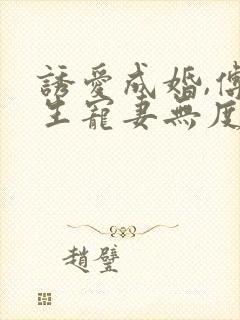 誘愛成婚,傅
生寵妻無度
趙璧